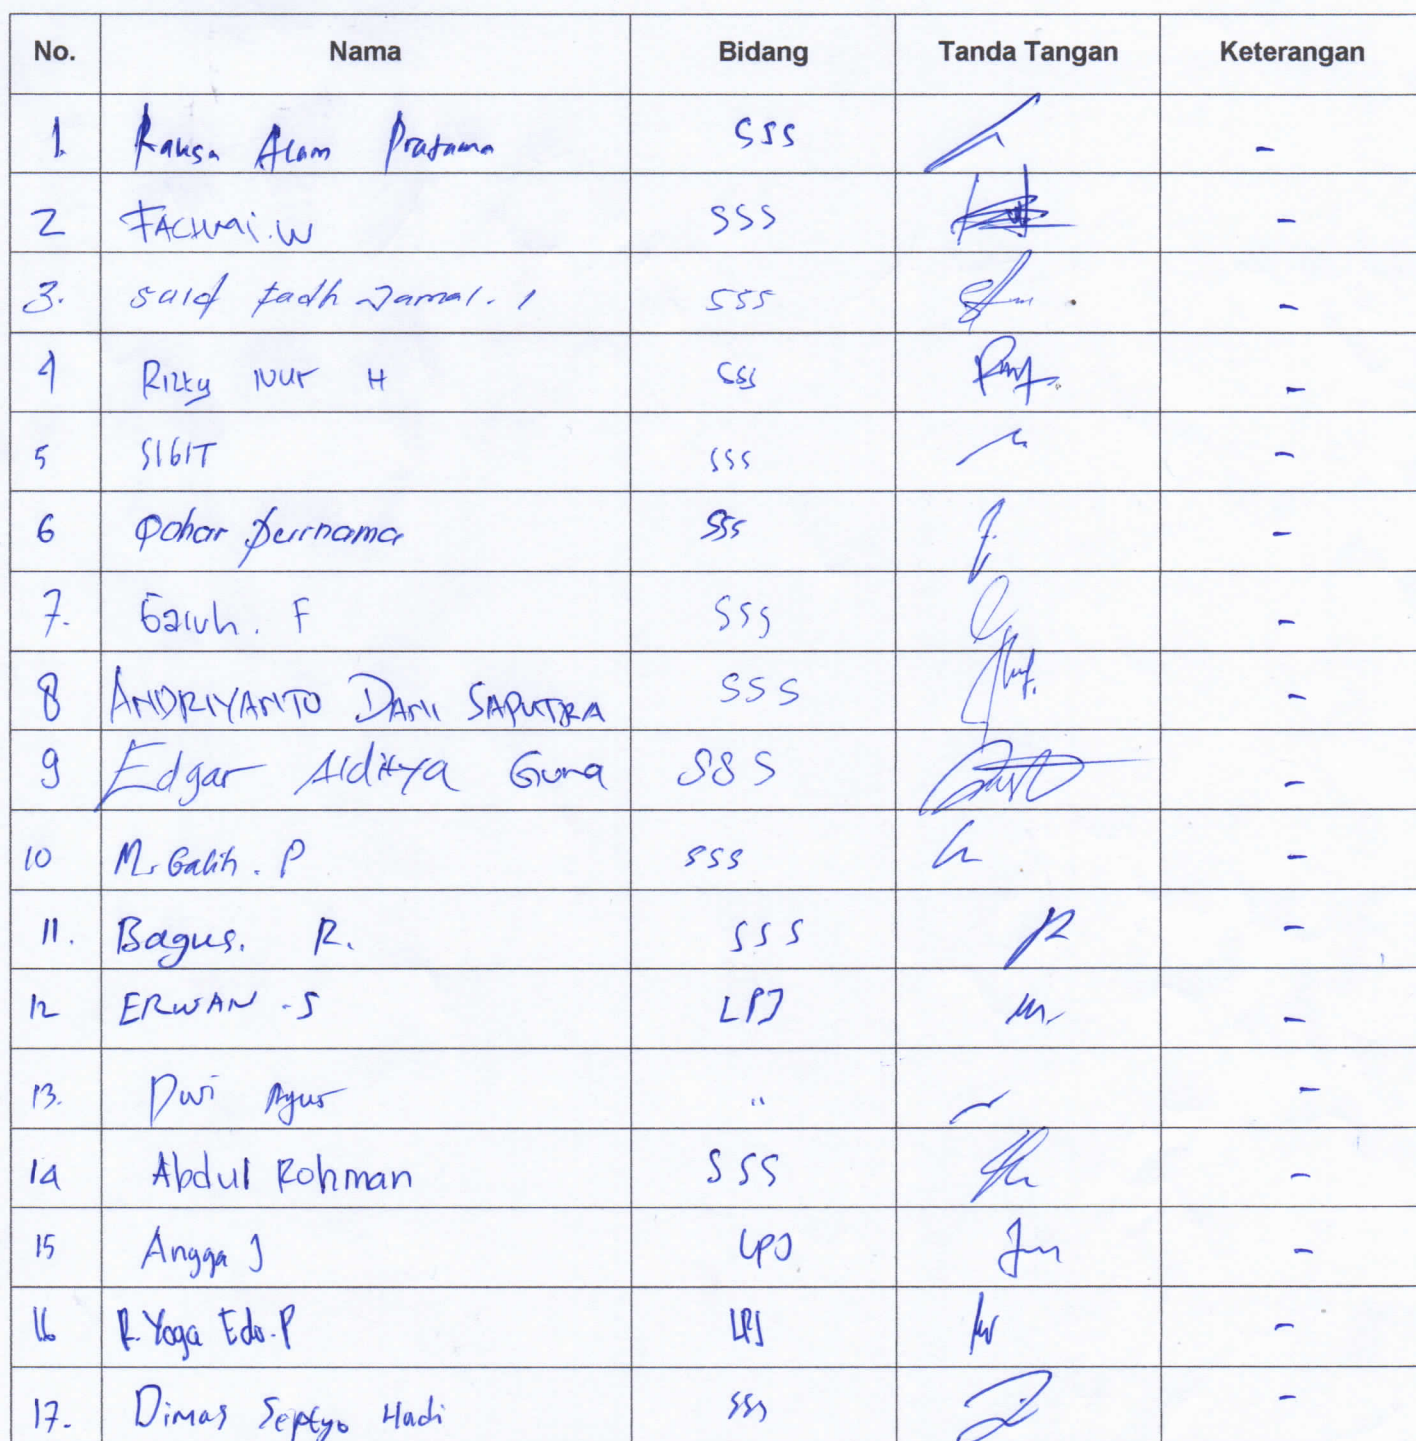 No. Nama Bidang Tanda Tangan Keterangan
1. Raksa Alam Pratama SSS -
2 FACHMI.W SSS -
3. said fadh Jamal. 1 SSS -
4 Rizky Nur H SSS -
5 SIGIT SSS -
6 Qohar purnama SSS -
7. Galuh. F SSS -
8 ANDRIYANTO DANI SAPUTRA SSS -
9 Edgar Alditya Guna SSS -
10 M. Galih. P SSS -
11. Bagus. R. SSS -
12 ERWAN -S LPJ -
13. Dwi Agus " -
14 Abdul Rohman SSS -
15 Angga J LPJ -
16 R. Yoga Edo. P LPJ -
17. Dimas Septyo Hadi SSS -